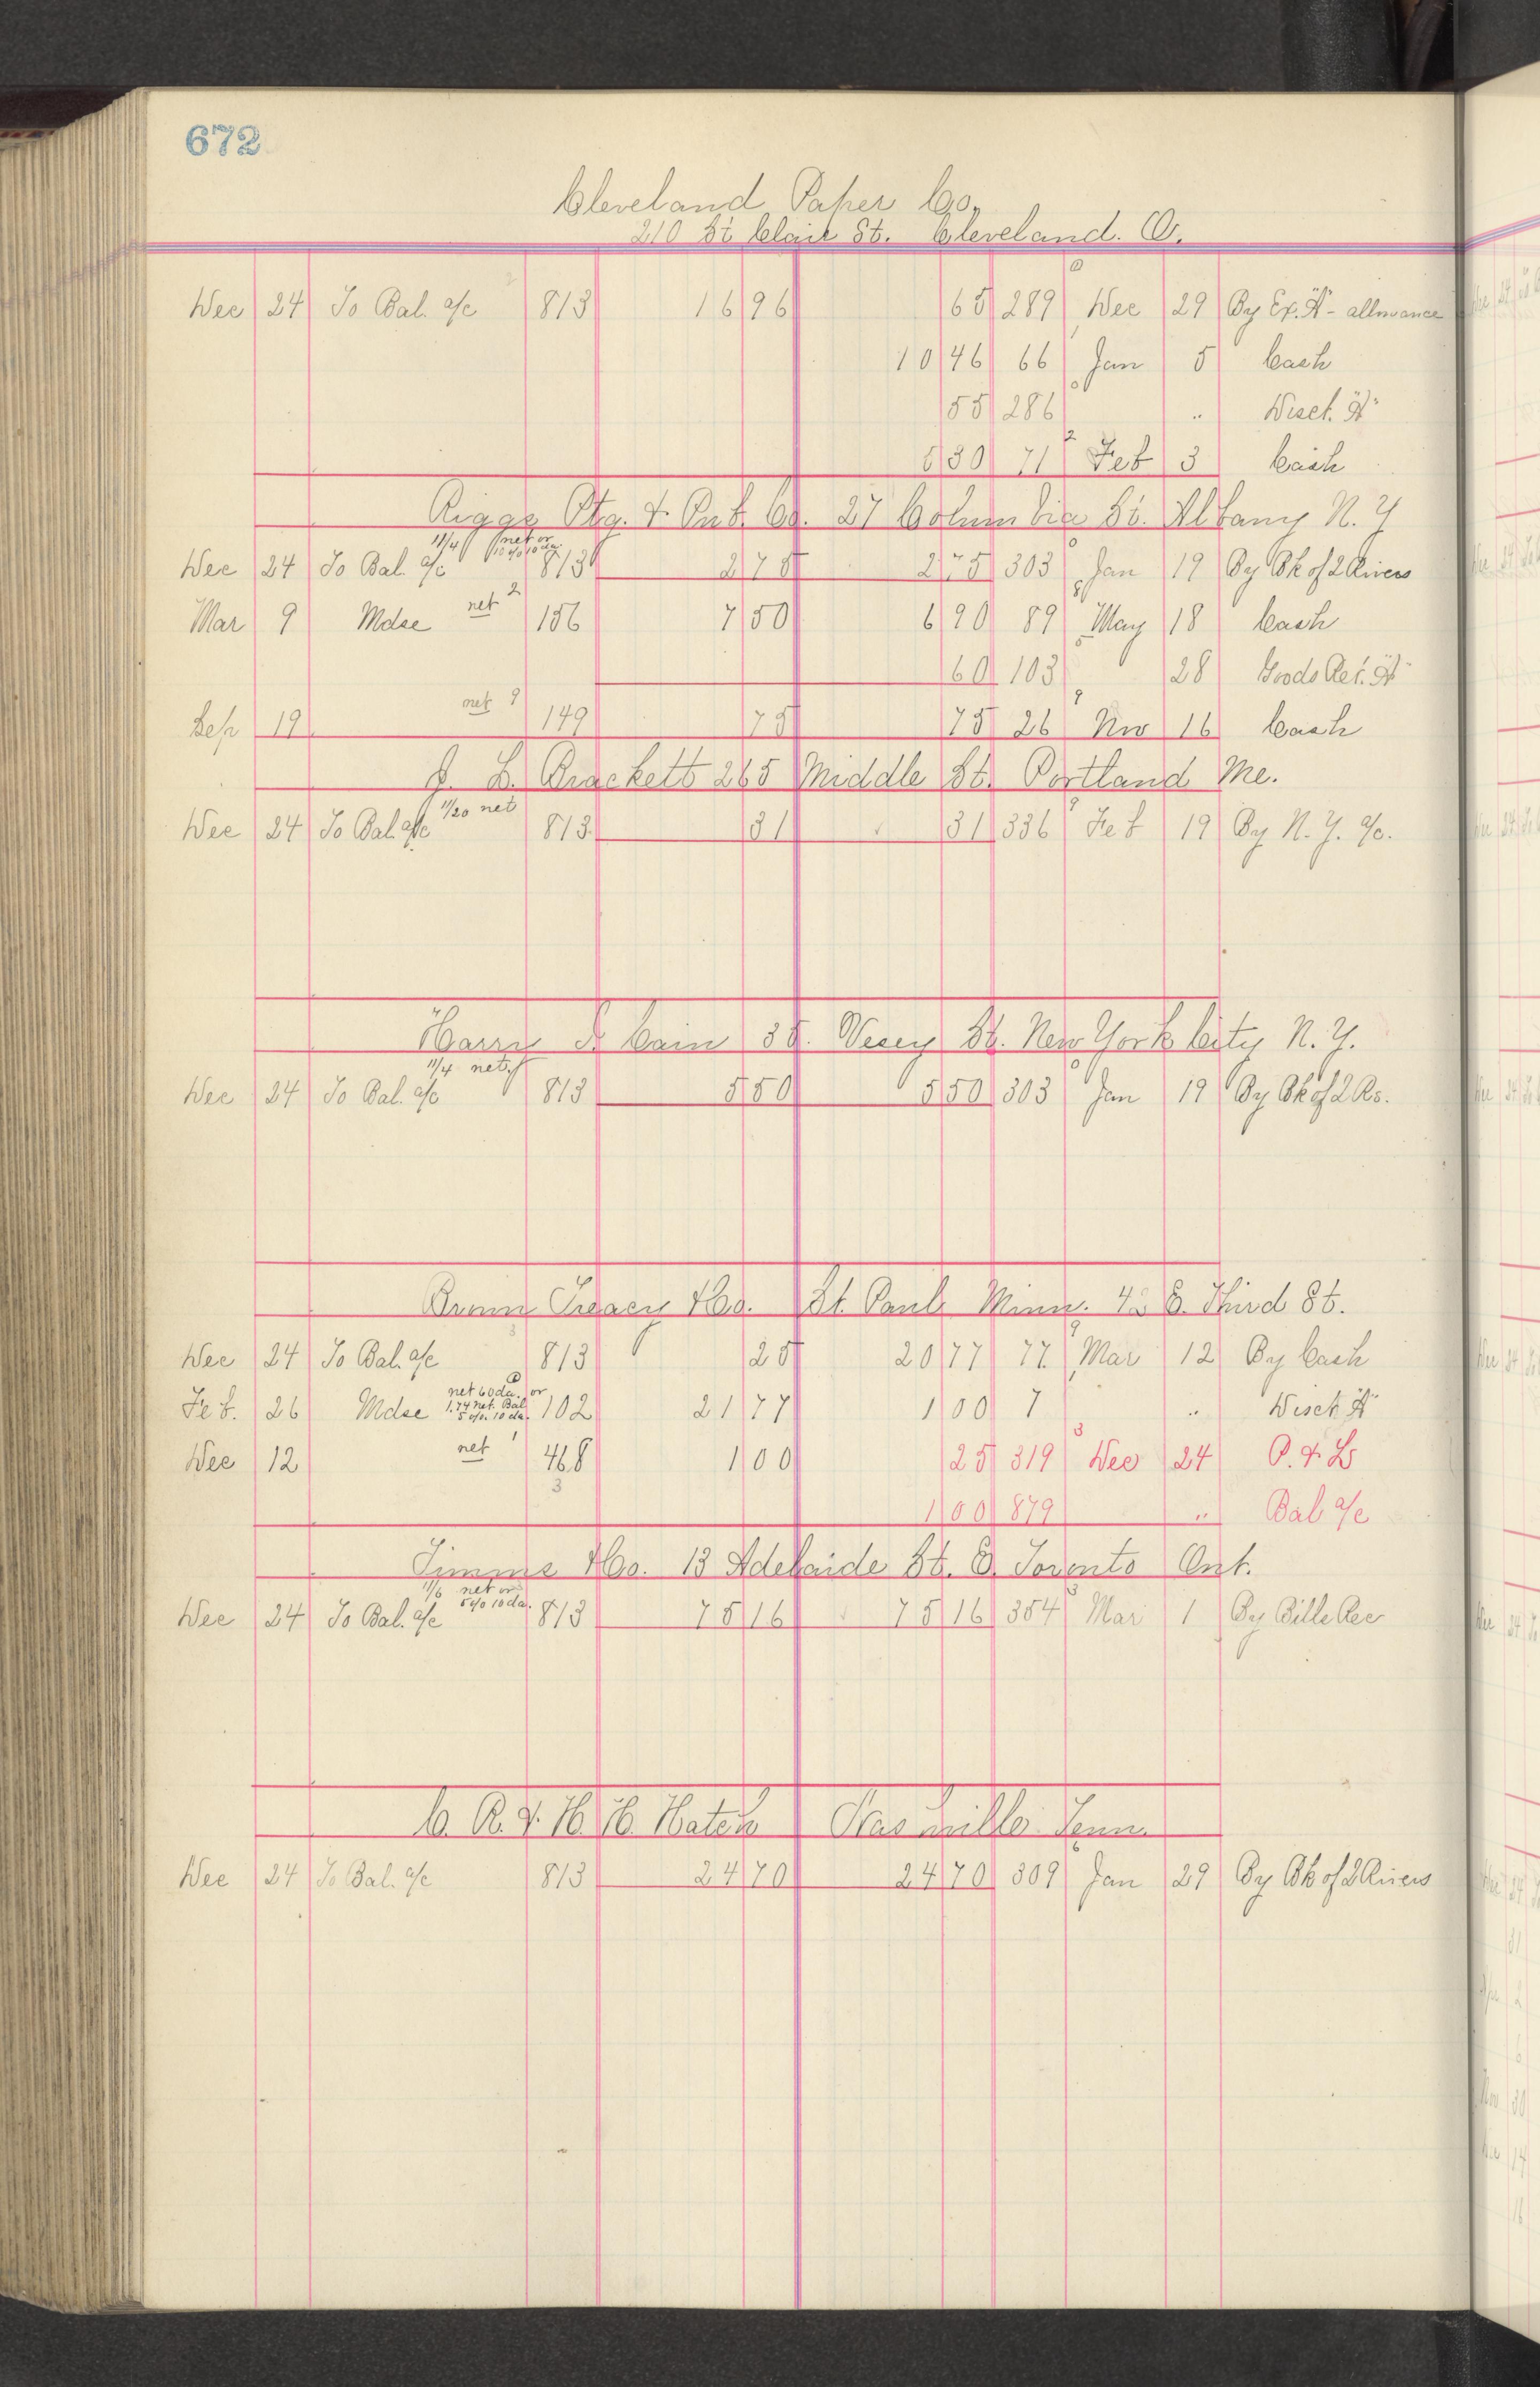 672
Cleveland Paper Co.
210 St Clair St. Cleveland. O.
Dec 24 To Bal. a/c 813 16 96 65 289 Dec 29 By Ex. "A" - allowance
10 46 66 Jan 5 Cash
55 286 " Disct. "A"
5 30 71 Feb 3 Cash
Riggs Ptg. & Pub. Co. 27 Columbia St. Albany N. Y
11/4 net or
10% 10 da.
Dec 24 To Bal. a/c 813 2 75 2 75 303 Jan 19 By Bk of 2 Rivers
Mar 9 Mdse net 2 156 7 50 6 90 89 May 18 Cash
60 103 28 Goods Ret. "A"
Sep 19 net 9 149 75 75 26 Nov 16 Cash
J. L. Brackett 265 Middle St. Portland Me.
11/20 net
Dec 24 To Bal a/c 813 31 31 336 Feb 19 By N. Y. a/c.
Harry Cain 35 Vesey St. New York City N. Y.
11/4 net
Dec 24 To Bal. a/c 813 5 50 5 50 303 Jan 19 By Bk of 2 Rs.
Brown Treacy & Co. St. Paul Minn. E. Third St.
Dec 24 To Bal. a/c 813 25 20 77 77 Mar 12 By Cash
net 60 da. or
1.74 net. Bal
5% 10 da.
Feb. 26 Mdse 102 21 77 1 00 7 " Disct "A"
Dec 12 net 1 468 1 00 25 319 Dec 24 P. & L
3
1 00 879 " Bal a/c
Timms & Co. 13 Adelaide St. E. Toronto Ont.
11/6 net or
5% 10 da.
Dec 24 To Bal. a/c 813 75 16 75 16 354 Mar 1 By Bills Rec
C. R. & H. H. Hatch Nashville Tenn.
Dec 24 To Bal. a/c 813 24 70 24 70 309 Jan 29 By Bk of 2 Rivers